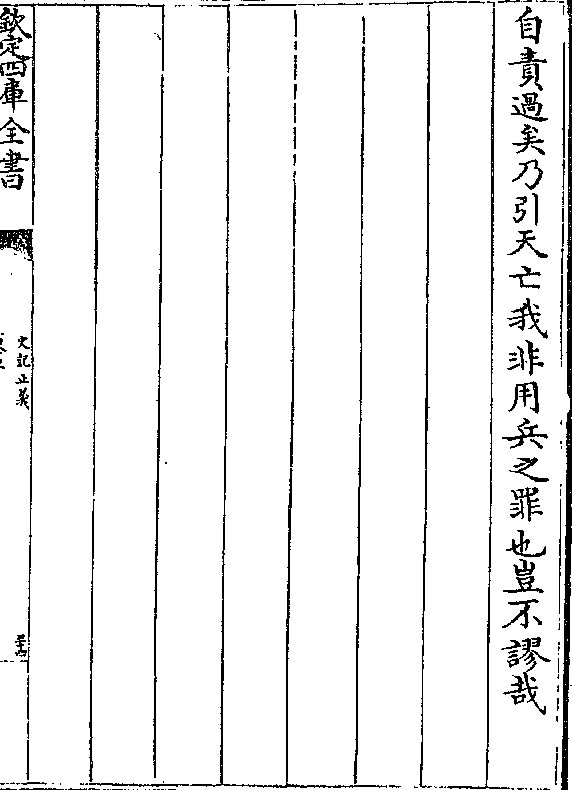 自責過矣乃引天亡我非用兵之罪也豈不謬哉
欽定四庫全書
史記正義